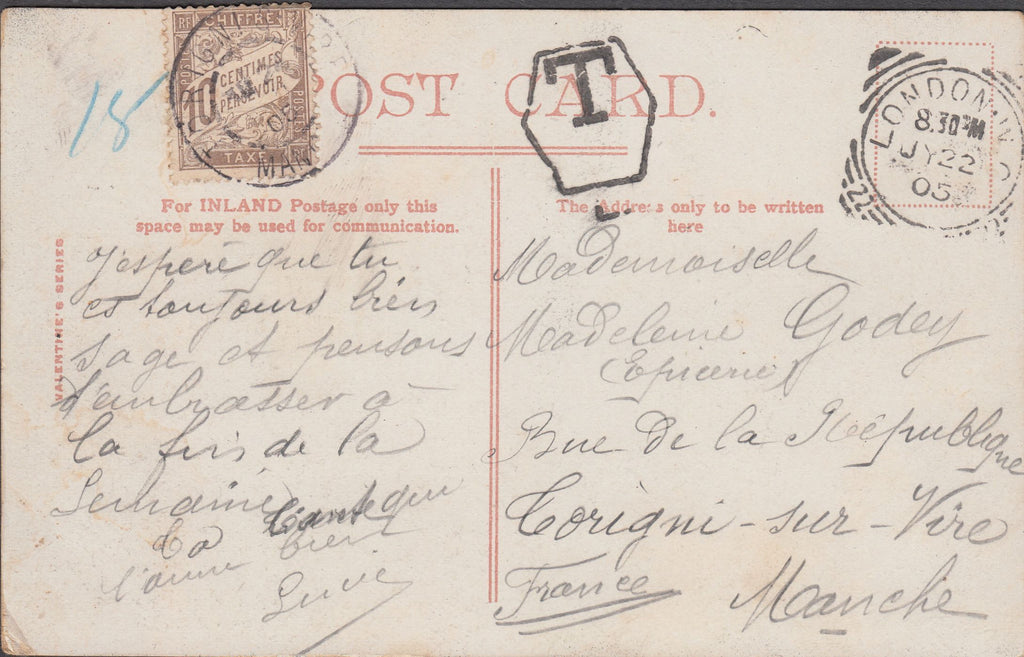 RF CHIFFRE RF
10 CENTIMES
A PERCEVOIR
POSTES
TAXE
MAN
05
18
POST CARD.
T
LONDON. W
8.30 PM
JY 22
05
22
For INLAND Postage only this
space may be used for communication.
The Address only to be written
here
VALENTINE'S SERIES
J'espère que tu
es toujours bien
sage et pensons
d'embrasser à
la fin de la
Semaine
Ta tante qui
t'aime bien
Mademoiselle
Madeleine Godey
(Epicerie)
Rue de la République
Torigni-sur-Vire
France Manche